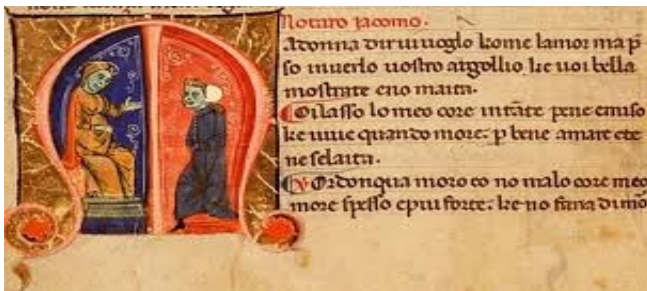 Notaro Jacomo.
adonna dir ui uoglo kome lamor ma p̄
so inuerlo uostro argollio ke uoi bella
mostrate eno maita.
Oilasso lo meo core intāte pene emiso
ke uiue quando more. p bene amare ete
neselauita.
Ordonqua moro eo no malo core meo
more spesso epiu forte. ke no faria di mo